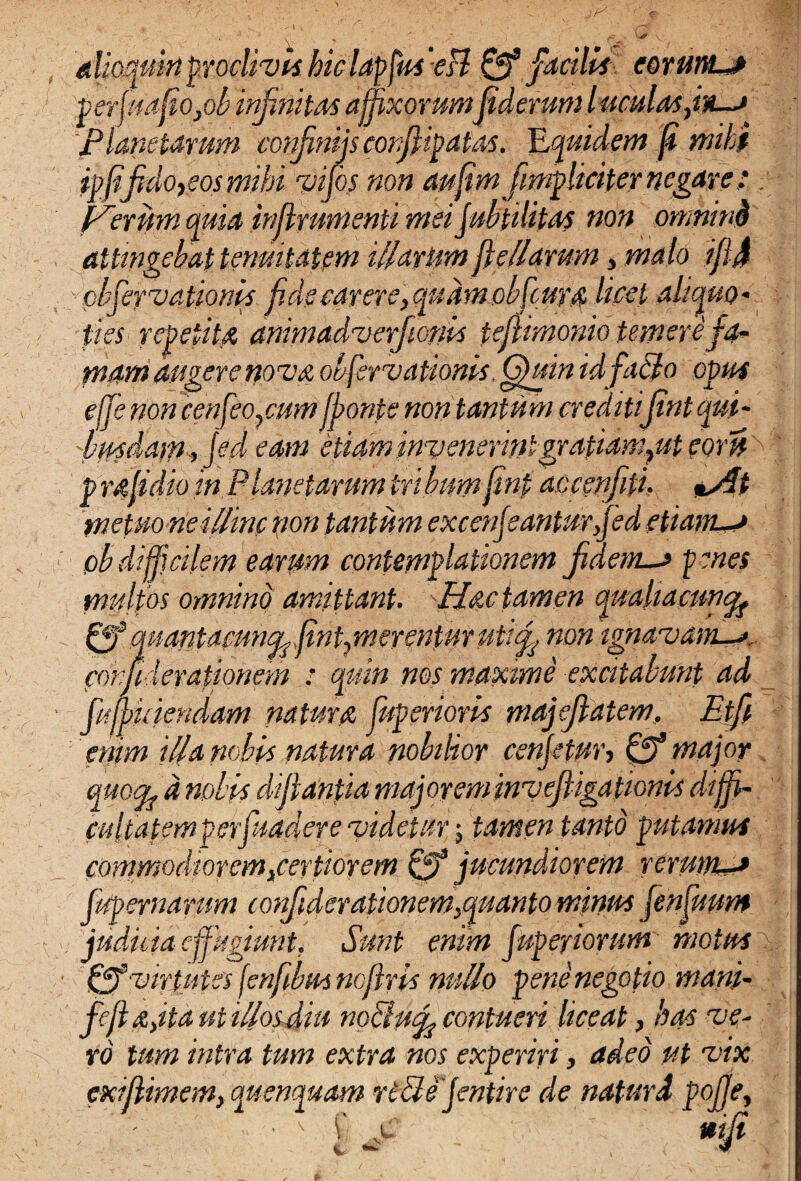 alioquin proclivis hic lapſus eſt & facilis eorum
perſuaſio, ob infinitas affixorum ſiderum luculas, in
Planetarum confinijs conſtipatas. Equidem ſi mihi
ipſi fido, eos mihi viſos non auſim ſimpliciter negare:
Verùm quia inſtrumenti mei ſubtilitas non omninò
attingebat tenuitatem illarum ſtellarum, malo iſtâ
obſervationis fide carere, quàm obſcuræ licet aliquo-
ties repetitæ animadverſionis teſtimonio temerè fa-
mam augere novæ obſervationis. Quin id facto opus
eſſe non cenſeo, cum ſponte non tantùm crediti ſint qui-
busdam, ſed eam etiam invenerint gratiam, ut eorū
præſidio in Planetarum tribum ſint accenſiti. At
metuo ne illinc non tantùm excenſeantur, ſed etiam
ob difficilem earum contemplationem fidem penes
multos omninò amittant. Hæc tamen qualiacunq;
& quantacunq; ſint, merentur utiq; non ignavam
conſiderationem : quin nos maximè excitabunt ad
ſuſpiciendam naturæ ſuperioris majeſtatem. Etſi
enim illa nobis natura nobilior cenſetur, & major
quoq; à nobis diſtantia majorem inveſtigationis diffi-
cultatem perſuadere videtur; tamen tantò putamus
commodiorem, certiorem & jucundiorem rerum
ſupernarum conſiderationem, quanto minus ſenſuum
judicia effugiunt. Sunt enim ſuperiorum motus
& virtutes ſenſibus noſtris nullo penè negotio mani-
feſtæ, ita ut illos diu noctuq; contueri liceat, has ve-
rò tum intra tum extra nos experiri, adeò ut vix
exiſtimem, quenquam rectè ſentire de naturâ poſſe,
niſi